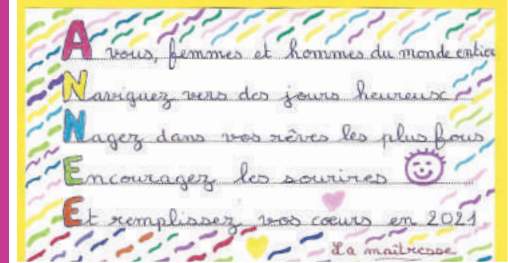 A vous, femmes et hommes du monde entier
Naviguez vers des jours heureux
Nagez dans vos rêves les plus fous
Encouragez les sourires
Et remplissez vos cœurs en 2021
La maîtresse